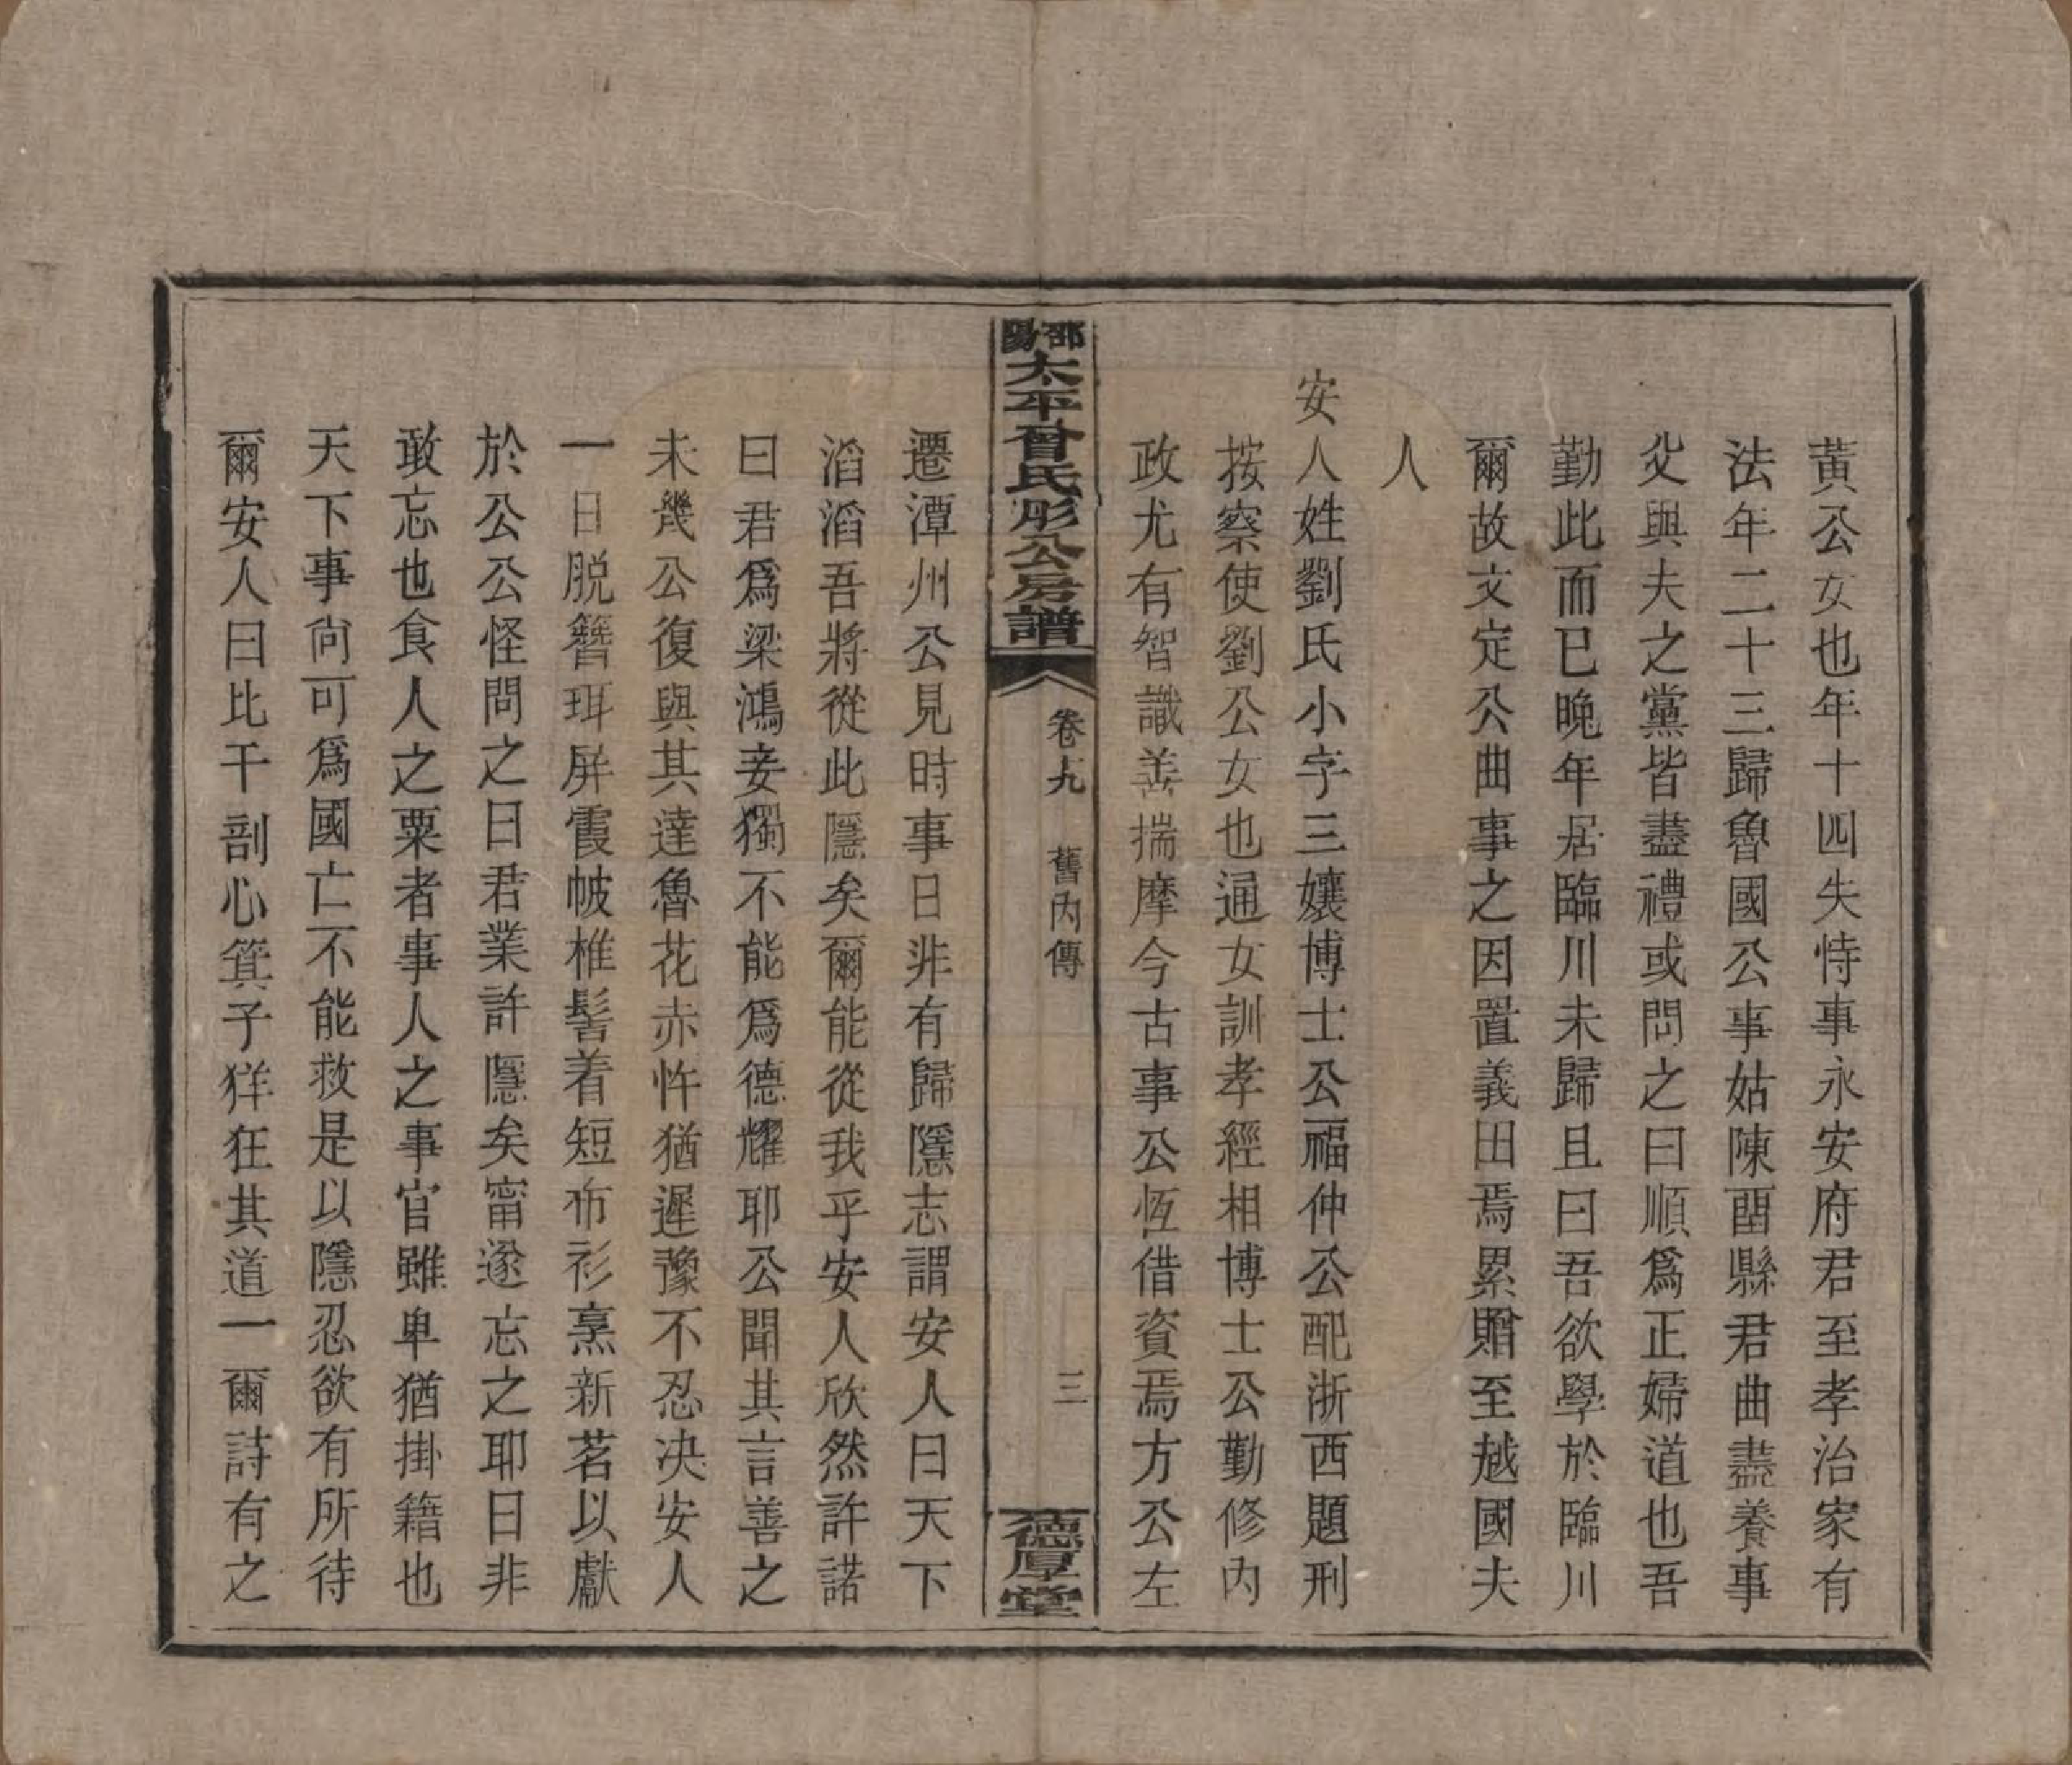 黃公女也年十四失恃事永安府君至孝治家有
法年二十三歸魯國公事姑陳酉縣君曲盡養事
父與夫之黨皆盡禮或問之曰順爲正婦道也吾
勤此而已晚年居臨川未歸且曰吾欲學於臨川
爾故文定公曲事之因置義田焉累贈至越國夫
人
安人姓劉氏小字三孃博士公福仲公配浙西題刑
按察使劉公女也通女訓孝經相博士公勤修內
政尤有智識善揣摩今古事公恆借資焉方公左
邵陽太平曾氏彤公房譜
卷九 舊內傳
三
德厚堂
遷潭州公見時事日非有歸隱志謂安人曰天下
滔滔吾將從此隱矣爾能從我乎安人欣然許諾
曰君爲梁鴻妾獨不能爲德耀耶公聞其言善之
未幾公復與其達魯花赤忤猶遲豫不忍決安人
一日脱簪珥屏霞帔椎髻着短布衫烹新茗以獻
於公公怪問之曰君業許隱矣甯遂忘之耶曰非
敢忘也食人之粟者事人之事官雖卑猶掛籍也
天下事尙可爲國亡不能救是以隱忍欲有所待
爾安人曰比干剖心箕子徉狂其道一爾詩有之